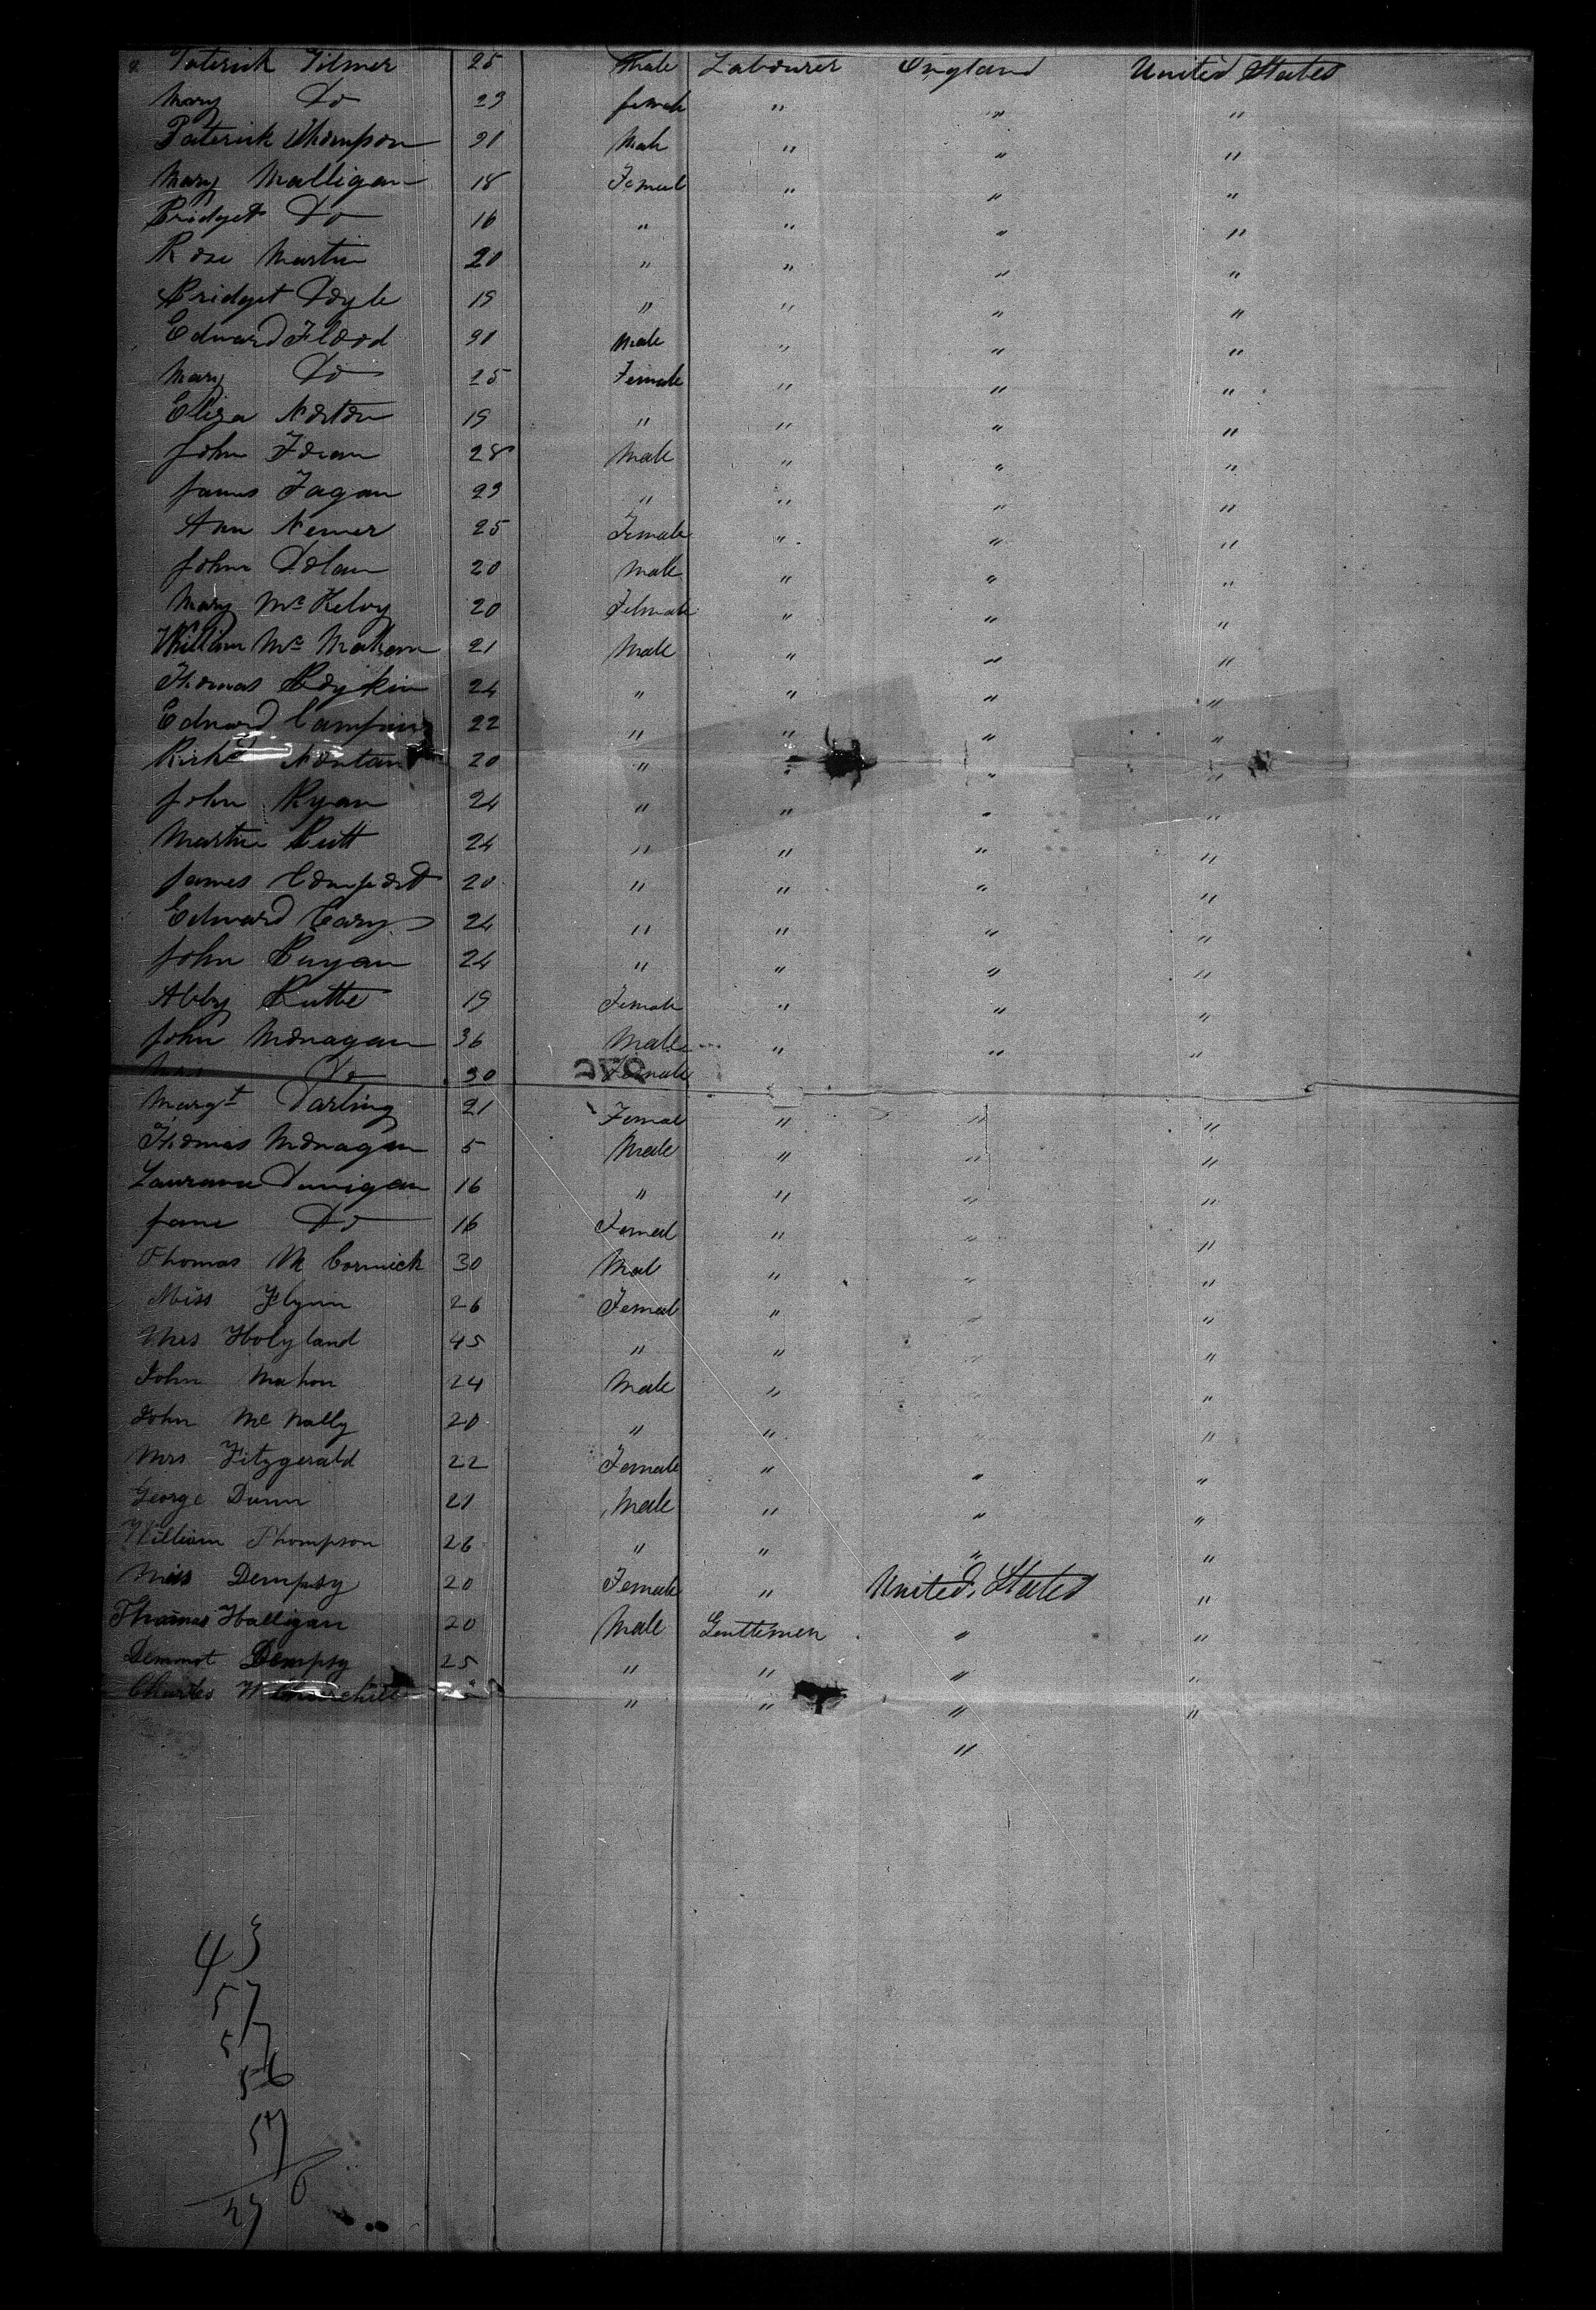 Paterick Gilmer 25 Male Labourer England United States
Mary Do 23 female " " "
Paterick Thompson 21 Male " " "
Mary Malligan 18 Femal " " "
Bridget Do 16 " " " "
Rose Martin 20 " " " "
Bridget Doyle 19 " " " "
Edward Flood 21 Male " " "
Mary Do 25 Female " " "
Eliza Norton 19 " " " "
John Foran 28 Male " " "
James Fagan 23 " " " "
Ann Nemer 25 Female " " "
John Dolan 20 Male " " "
Mary McKelvy 20 Felmale " " "
William Mc Mahan 21 Male " " "
Thomas Boykin 24 " " " "
Edward 22 " " " "
20 " " " "
John Ryan 24 " " " "
Martin Butt 24 " " " "
James Comford 20 " " " "
Edward Cary 24 " " " "
John Bunyan 24 " " " "
Abby Butte 19 Female " " "
John Monagan 36 Male " " "
Mrs Do 30 Female
Margt Darling 21 Femal " " "
Thomas Monagan 5 Male " " "
Laurance Dunigan 16 " " " "
Jane Do 16 Femal " " "
Thomas Mc Cormick 30 Mal " " "
Miss Flynn 26 Femal " " "
Mrs Holyland 45 " " " "
John Mahon 24 Male " " "
John Mc Nally 20 " " " "
Mrs Fitzgerald 22 Female " " "
George Dunn 21 Male " " "
William Thompson 26 " " " "
Miss Dempsy 20 Female " United States "
Thomas Halligan 20 Male Gentlemen " "
Dermot Dempsy 25 " " " "
Charles W Churchill " " " "
"
43
57
57
56
57
270